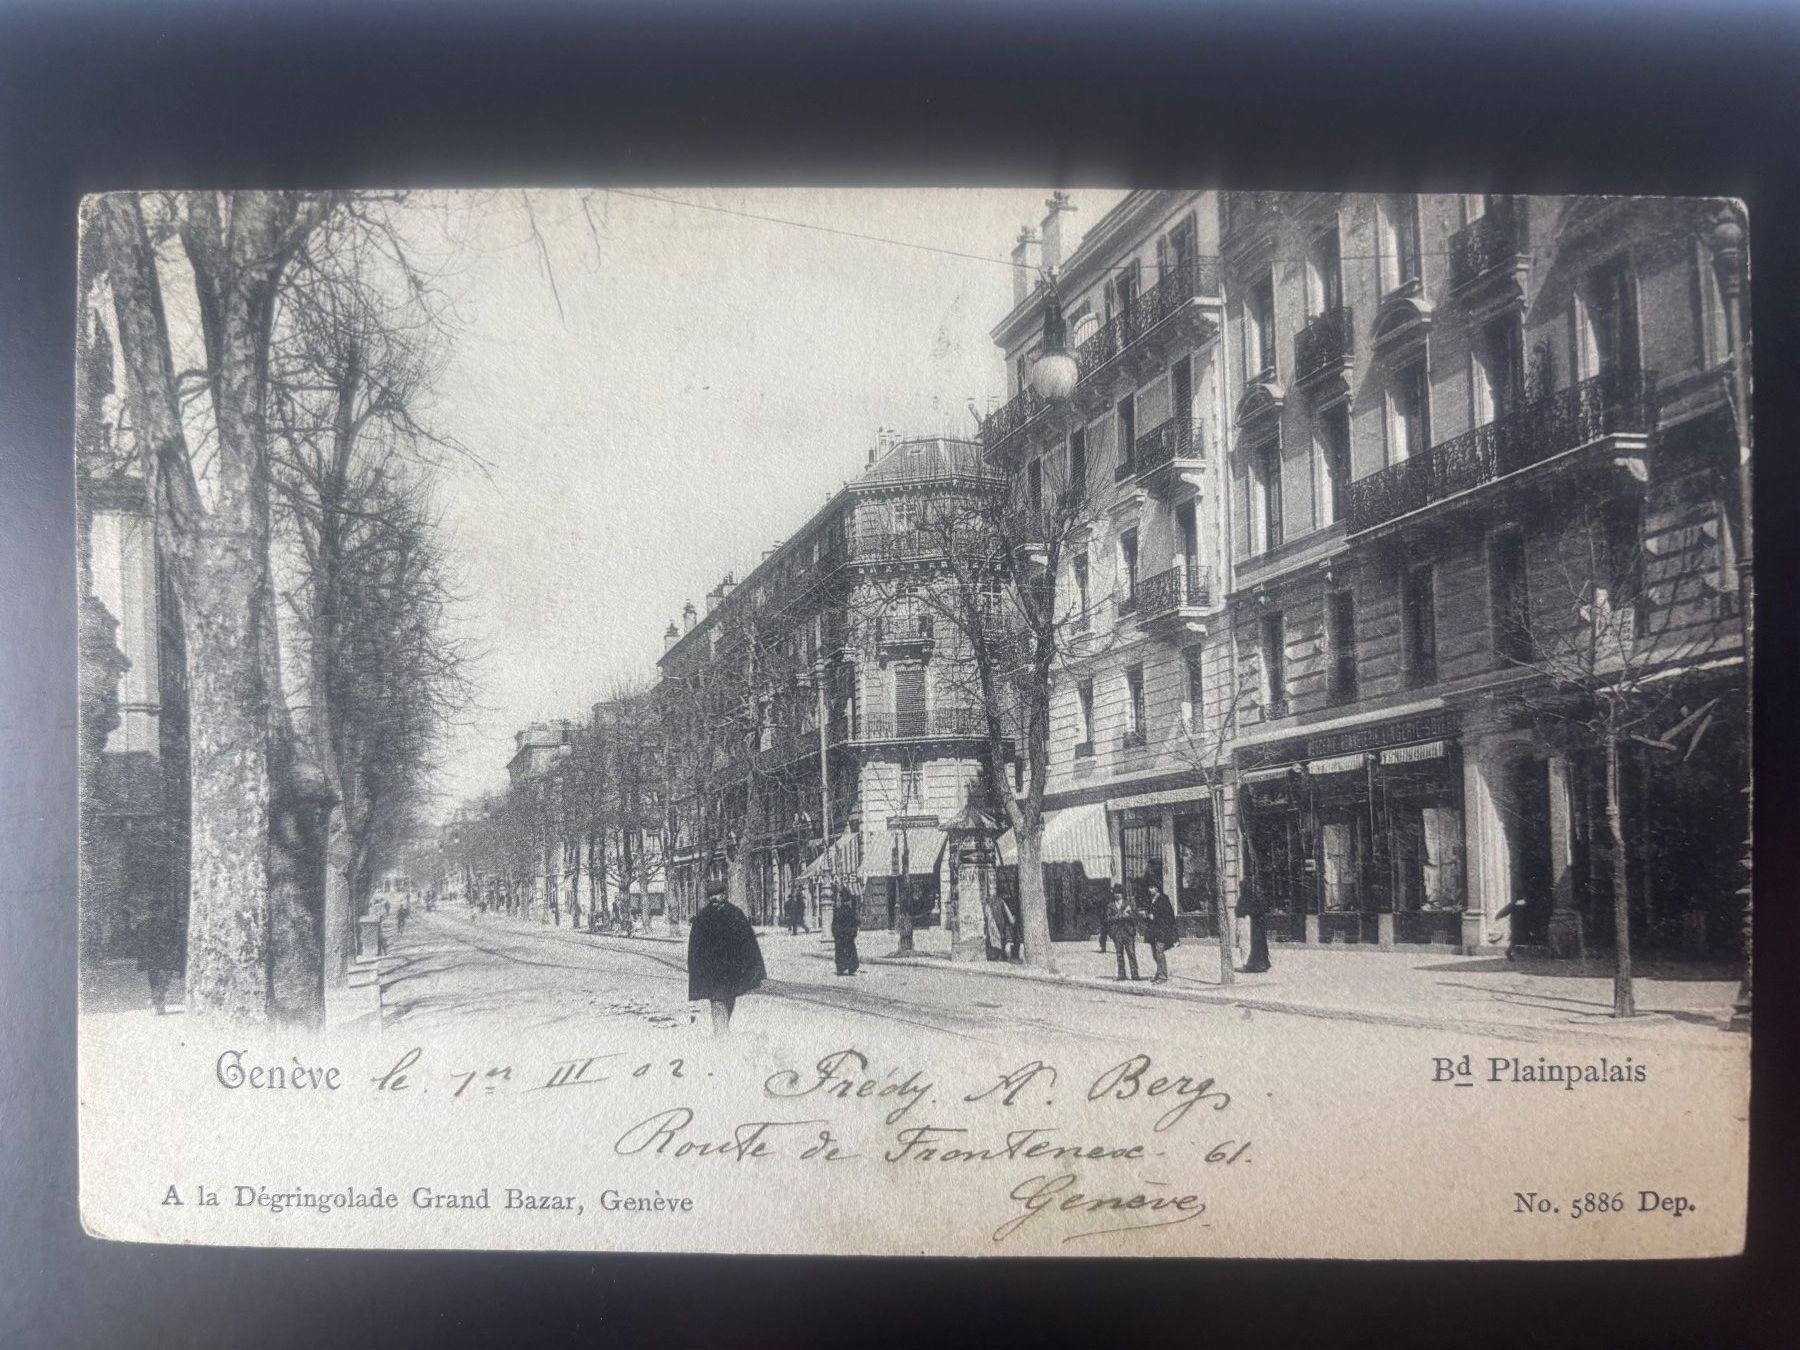 Genève le 1er III 02. Frédy. A. Berg. Bd Plainpalais
Route de Frontenex. 61.
A la Dégringolade Grand Bazar, Genève Genève No. 5886 Dep.